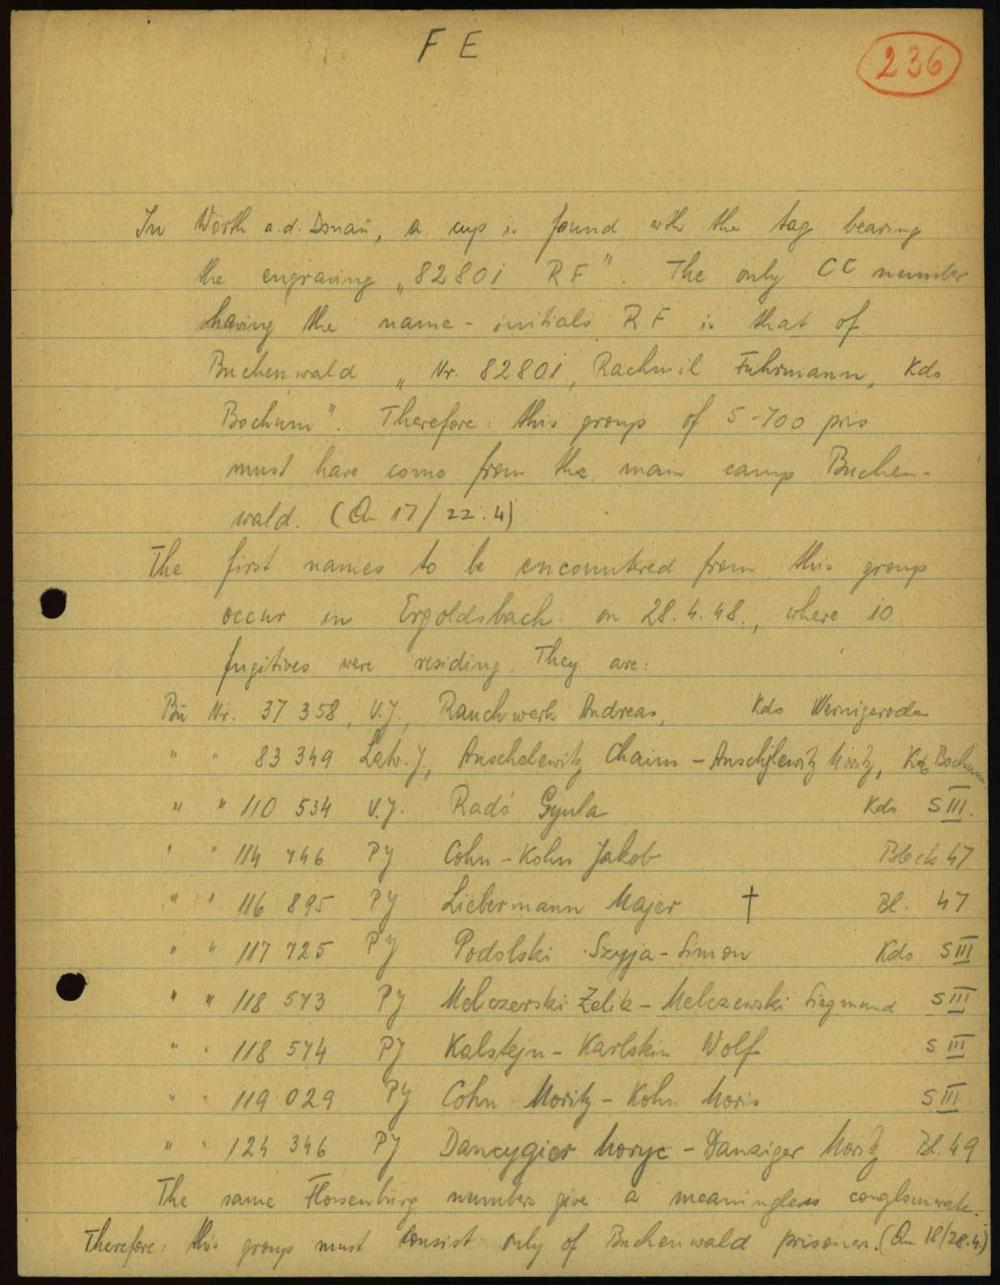 F E
236
In Wörth a.d. Donau, a cup is found with the tag bearing
the engraving „82801 RF". The only CC number
having the name-initials RF is that of
Buchenwald „Nr. 82801, Rachmil Fuhrmann, Kdo
Bochum". Therefore: this group of 5-700 pris
must have come from the main camp Buchen-
wald. (Qn 17/22.4)
The first names to be encountered from this group
occur in Ergoldsbach on 28.4.48., where 10
fugitives were residing. They are:
Bu Nr. 37 358, V.J., Rauchwerk Andreas, Kdo Wernigerode
" " 83 349 Letv.J, Anschelewitz Chaim - Anschlewitz Moritz, Kdo Bochum
" " 110 534 V.J. Radó Gyula Kdo S III.
" " 114 746 PJ Cohn - Kohn Jakob Block 47
" " 116 895 PJ Liebermann Majer † Bl. 47
" " 117 725 PJ Podolski Szyja-Simon Kdo S III
" " 118 573 PJ Melczerski Zelik - Melczewski Siegmund S III
" " 118 574 PJ Kalstejn - Karlstein Wolf S III
" " 119 029 PJ Cohn Moritz - Kohn Moris S III
" " 124 346 PJ Dancygier Moryc - Danziger Moritz Bl. 49
The same Flossenburg numbers give a meaningless conglomerate.
Therefore: this group must consist only of Buchenwald prisoners. (Qn 18/28.4)